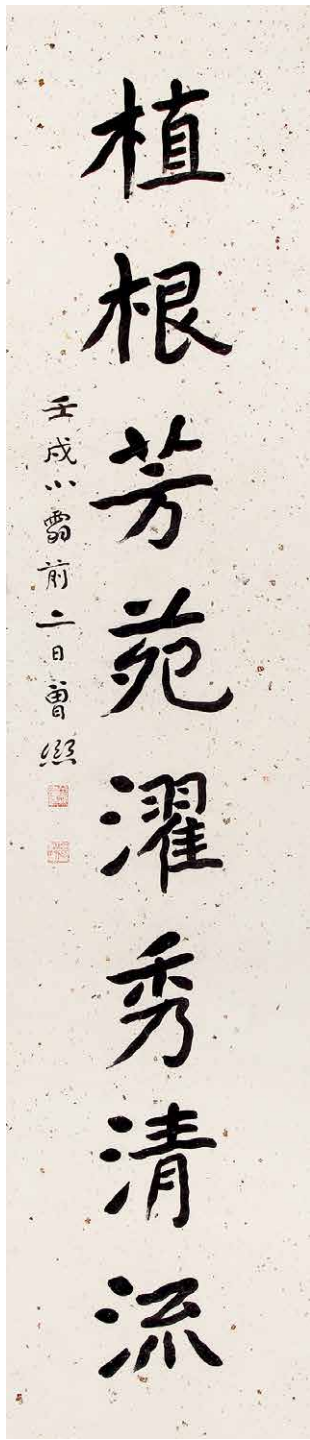 植根芳苑濯秀清流
壬戌小雪前二日曾熙